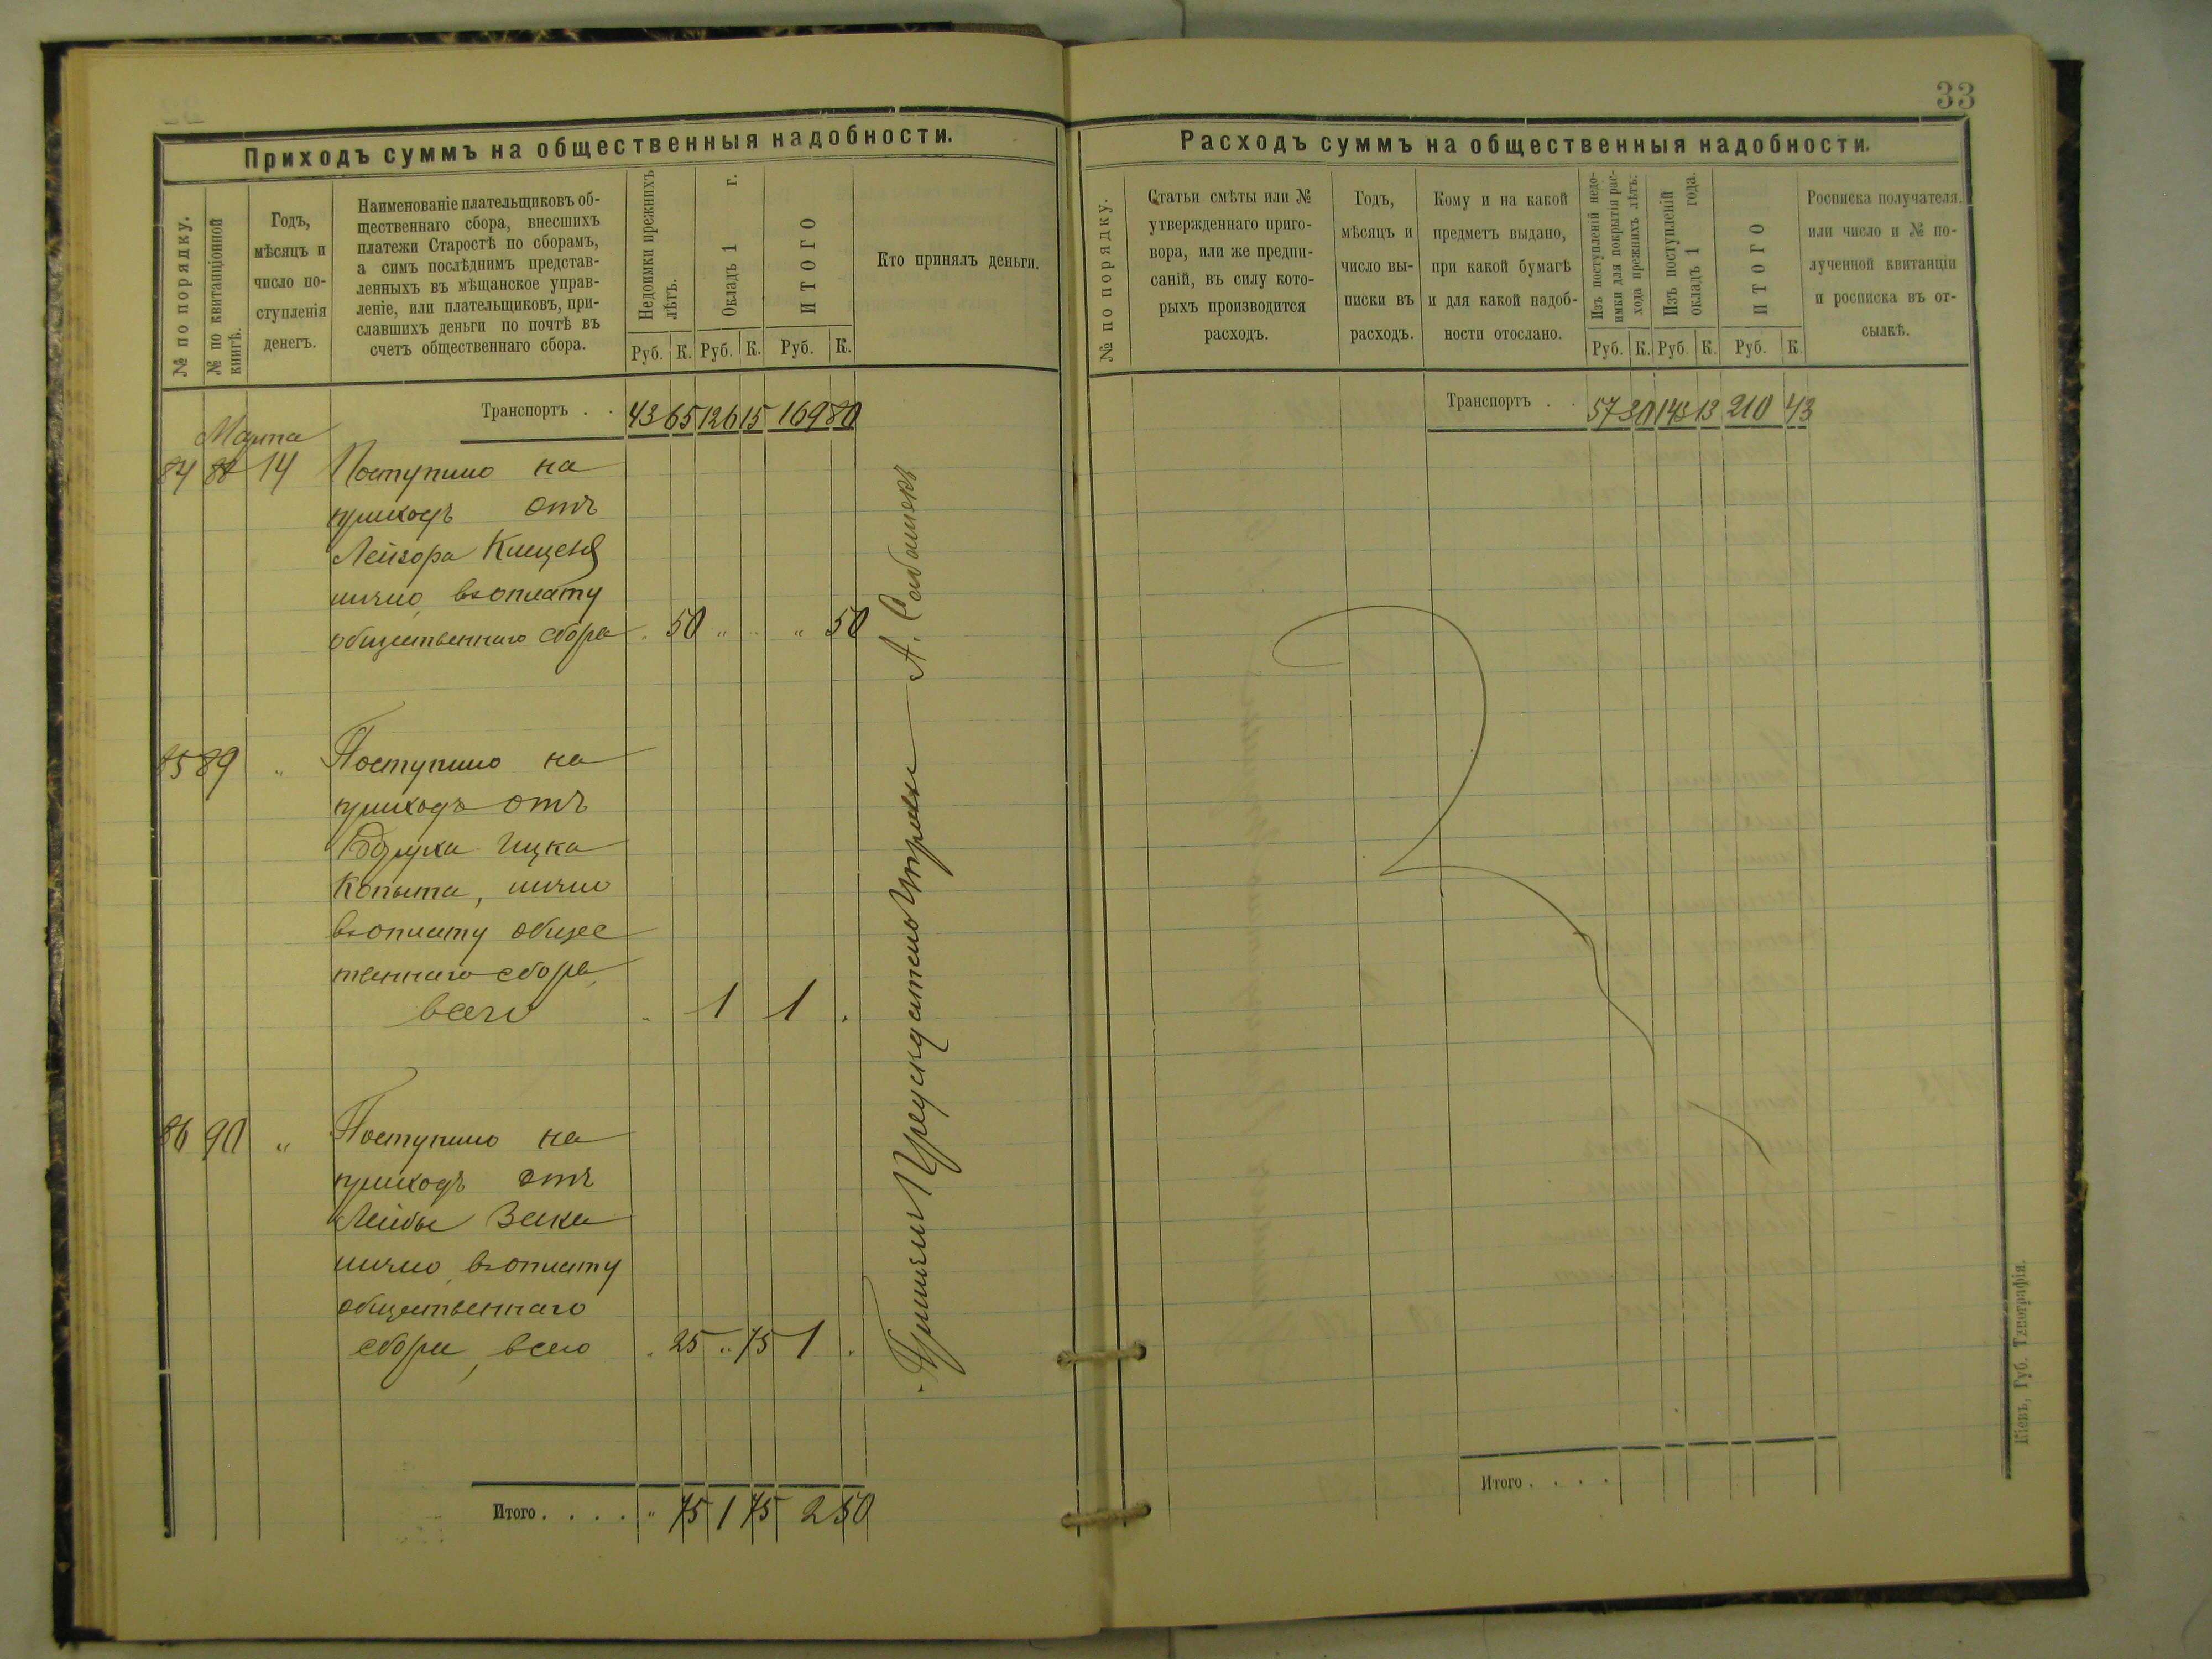 33
Приходъ суммъ на общественныя надобности.
№ по порядку.
№ по квитанціонной
книгѣ.
Годъ,
мѣсяцъ и
число по-
ступленія
денегъ.
Наименованіе плательщиковъ об-
щественнаго сбора, внесшихъ
платежи Старостѣ по сборамъ,
а симъ послѣднимъ представ-
ленныхъ въ мѣщанское управ-
леніе, или плательщиковъ, при-
славшихъ деньги по почтѣ въ
счетъ общественнаго сбора.
Недоимки прежнихъ
лѣтъ.
Окладъ 1 г.
ИТОГО
Руб. К. Руб. К. Руб. К.
Кто принялъ деньги.
Транспортъ . . 43 65 126 15 169 80
Марта
84 88 14 Поступило на
приходъ отъ
Лейзора
лично, въ оплату
общественнаго сбора . 50 " .. " 50
85 89 " Поступило на
приходъ отъ
Боруха Ицка
Копыта, лично
въ оплату обще
твеннаго сбора,
всего " 1 1 .
86 90 " Поступило на
приходъ отъ
Лейбы Зака
лично, въ оплату
общественнаго
сбора, всего . 25 " 75 1 .
Итого . . . . " 75 1 75 2 50
Расходъ суммъ на общественныя надобности.
№ по порядку.
Статьи смѣты или №
утвержденнаго приго-
вора, или же предпи-
саній, въ силу кото-
рыхъ производится
расходъ.
Годъ,
мѣсяцъ и
число вы-
писки въ
расходъ.
Кому и на какой
предметъ выдано,
при какой бумагѣ
и для какой надоб-
ности отослано.
Изъ поступленій недо-
имки для покрытія рас-
хода прежнихъ лѣтъ.
Изъ поступленій
окладъ 1 года.
ИТОГО
Руб. К. Руб. К. Руб. К.
Росписка получателя.
или число и № по-
лученной квитанціи
и росписка въ от-
сылкѣ.
Транспортъ . . 57 30 148 13 210 43
Итого . . . .
Кіевъ, Губ. Типографія.